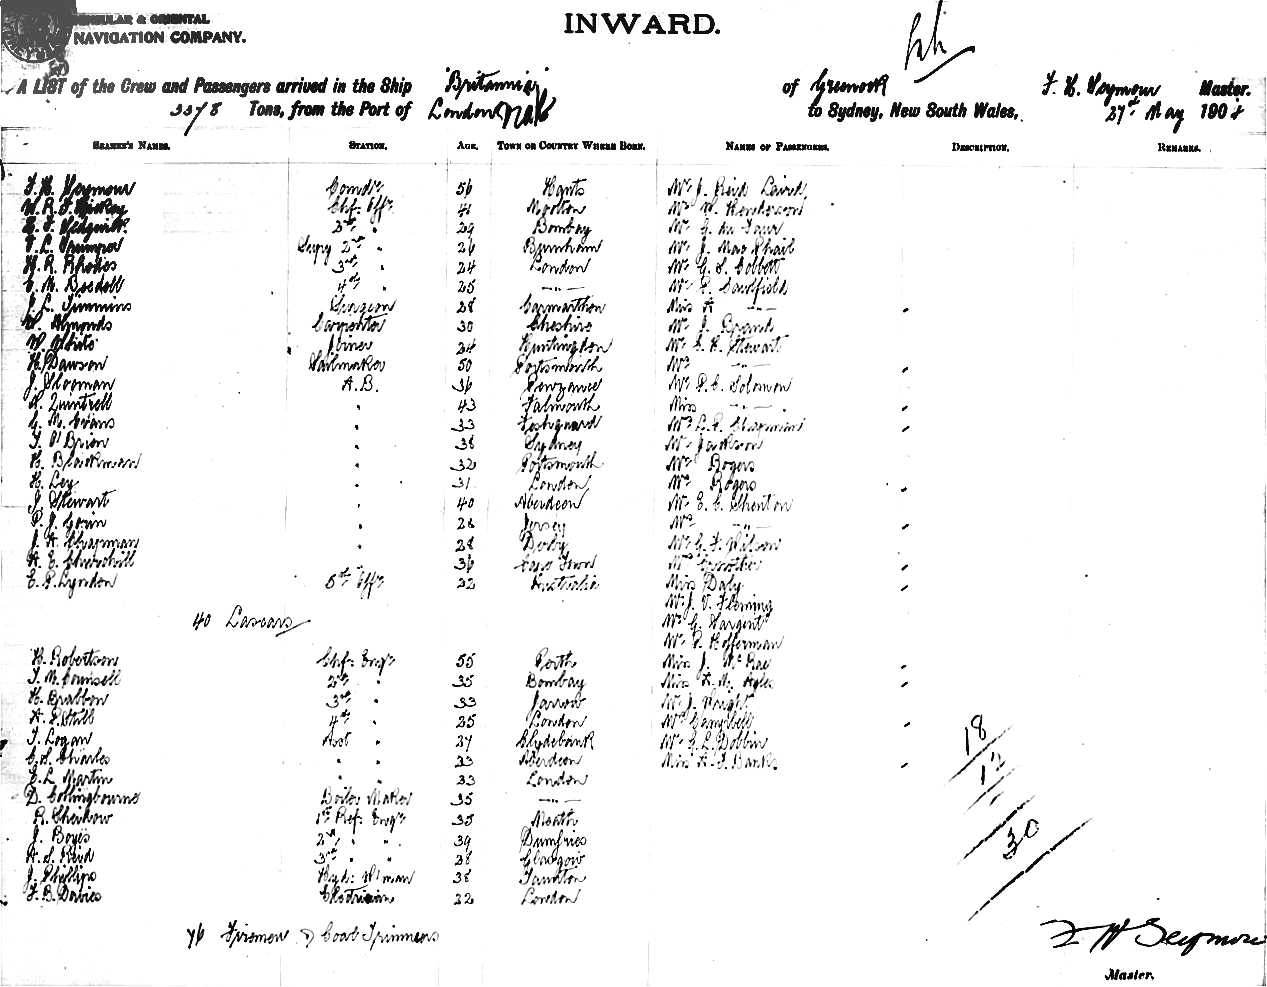 & ORIENTAL
NAVIGATION COMPANY.
INWARD.
A LIST of the Crew and Passengers arrived in the Ship "Britannia" of Greenock F. H. Seymour Master.
Tons, from the Port of London to Sydney, New South Wales, 27th May 190
SEAMEN'S NAMES. STATION. AGE. TOWN OR COUNTRY WHERE BORN. NAMES OF PASSENGERS. DESCRIPTION. REMARKS.
F. H. Seymour Comdr 56 Hants Mr J. Reid Laird
Chf. Offr 41 Mr W. Henderson
2nd " 29 Bombay Mr G.
Supy 2nd " 26 Burnham Mr J. MacPhail
H. R. Rhodes 3rd " 24 London Mr G. S. Cobbett
4th " 25 — " — Mr P. Caulfield
J. L. Timmins Surgeon 28 Carmarthen Miss A — " —
W. Symonds Carpenter 30 Cheshire Mr J.
W. White Joiner 24 Huntingdon Mr G. H. Stewart
H. Dawson Sailmaker 50 Portsmouth Mrs — " —
J. Slooman A.B. 36 Penzance Mr P. E. Solomon
R. Quintrell " 43 Falmouth Miss — " —
G. M. Evans " 33 Fishguard Mrs L. E. Chapman
T. O'Brien " 38 Sydney Mr Jackson
H. Blackman " 32 Portsmouth Mr Rogers
H. Ley " 31 London Mrs Rogers
J. Stewart " 40 Aberdeen Mr E. E. Shenton
P. J. Gavin " 28 Jersey Mrs — " —
J. A. Chapman " 28 Derby Mr G. F. Wilson
A. E. Churchill " 36 Cape Town Mrs
E. P. Lyndon 5th Offr 22 Australia Miss Daly
Mr J. V. Fleming
40 Lascars Mr G. Sargent
Mr P. Hofferman
H. Robertson Chf. Engr 55 Perth Miss J. McRae
J. M. Counsell 2nd " 35 Bombay Miss A. M.
H. Brabbon 3rd " 33 Jarrow Mr J. Wright
4th " 25 London Mrs Campbell
J. Logan Asst " 27 Clydebank Mr G. L. Dobbin
C. S. Charles " " 23 Aberdeen Miss A. J. Banks
E. L. Martin " " 33 London
D. Collingbourne Boiler Maker 35 — " —
1st Ref. Engr 35
J. Boyes 2nd " " 39 Dumfries
A. S. Reid 3rd " " 28 Glasgow
J. Phillips 38 Taunton
F. B. Davies Electrician 22 London
76 Firemen & Coal Trimmers
18
12
30
F H Seymour
Master.